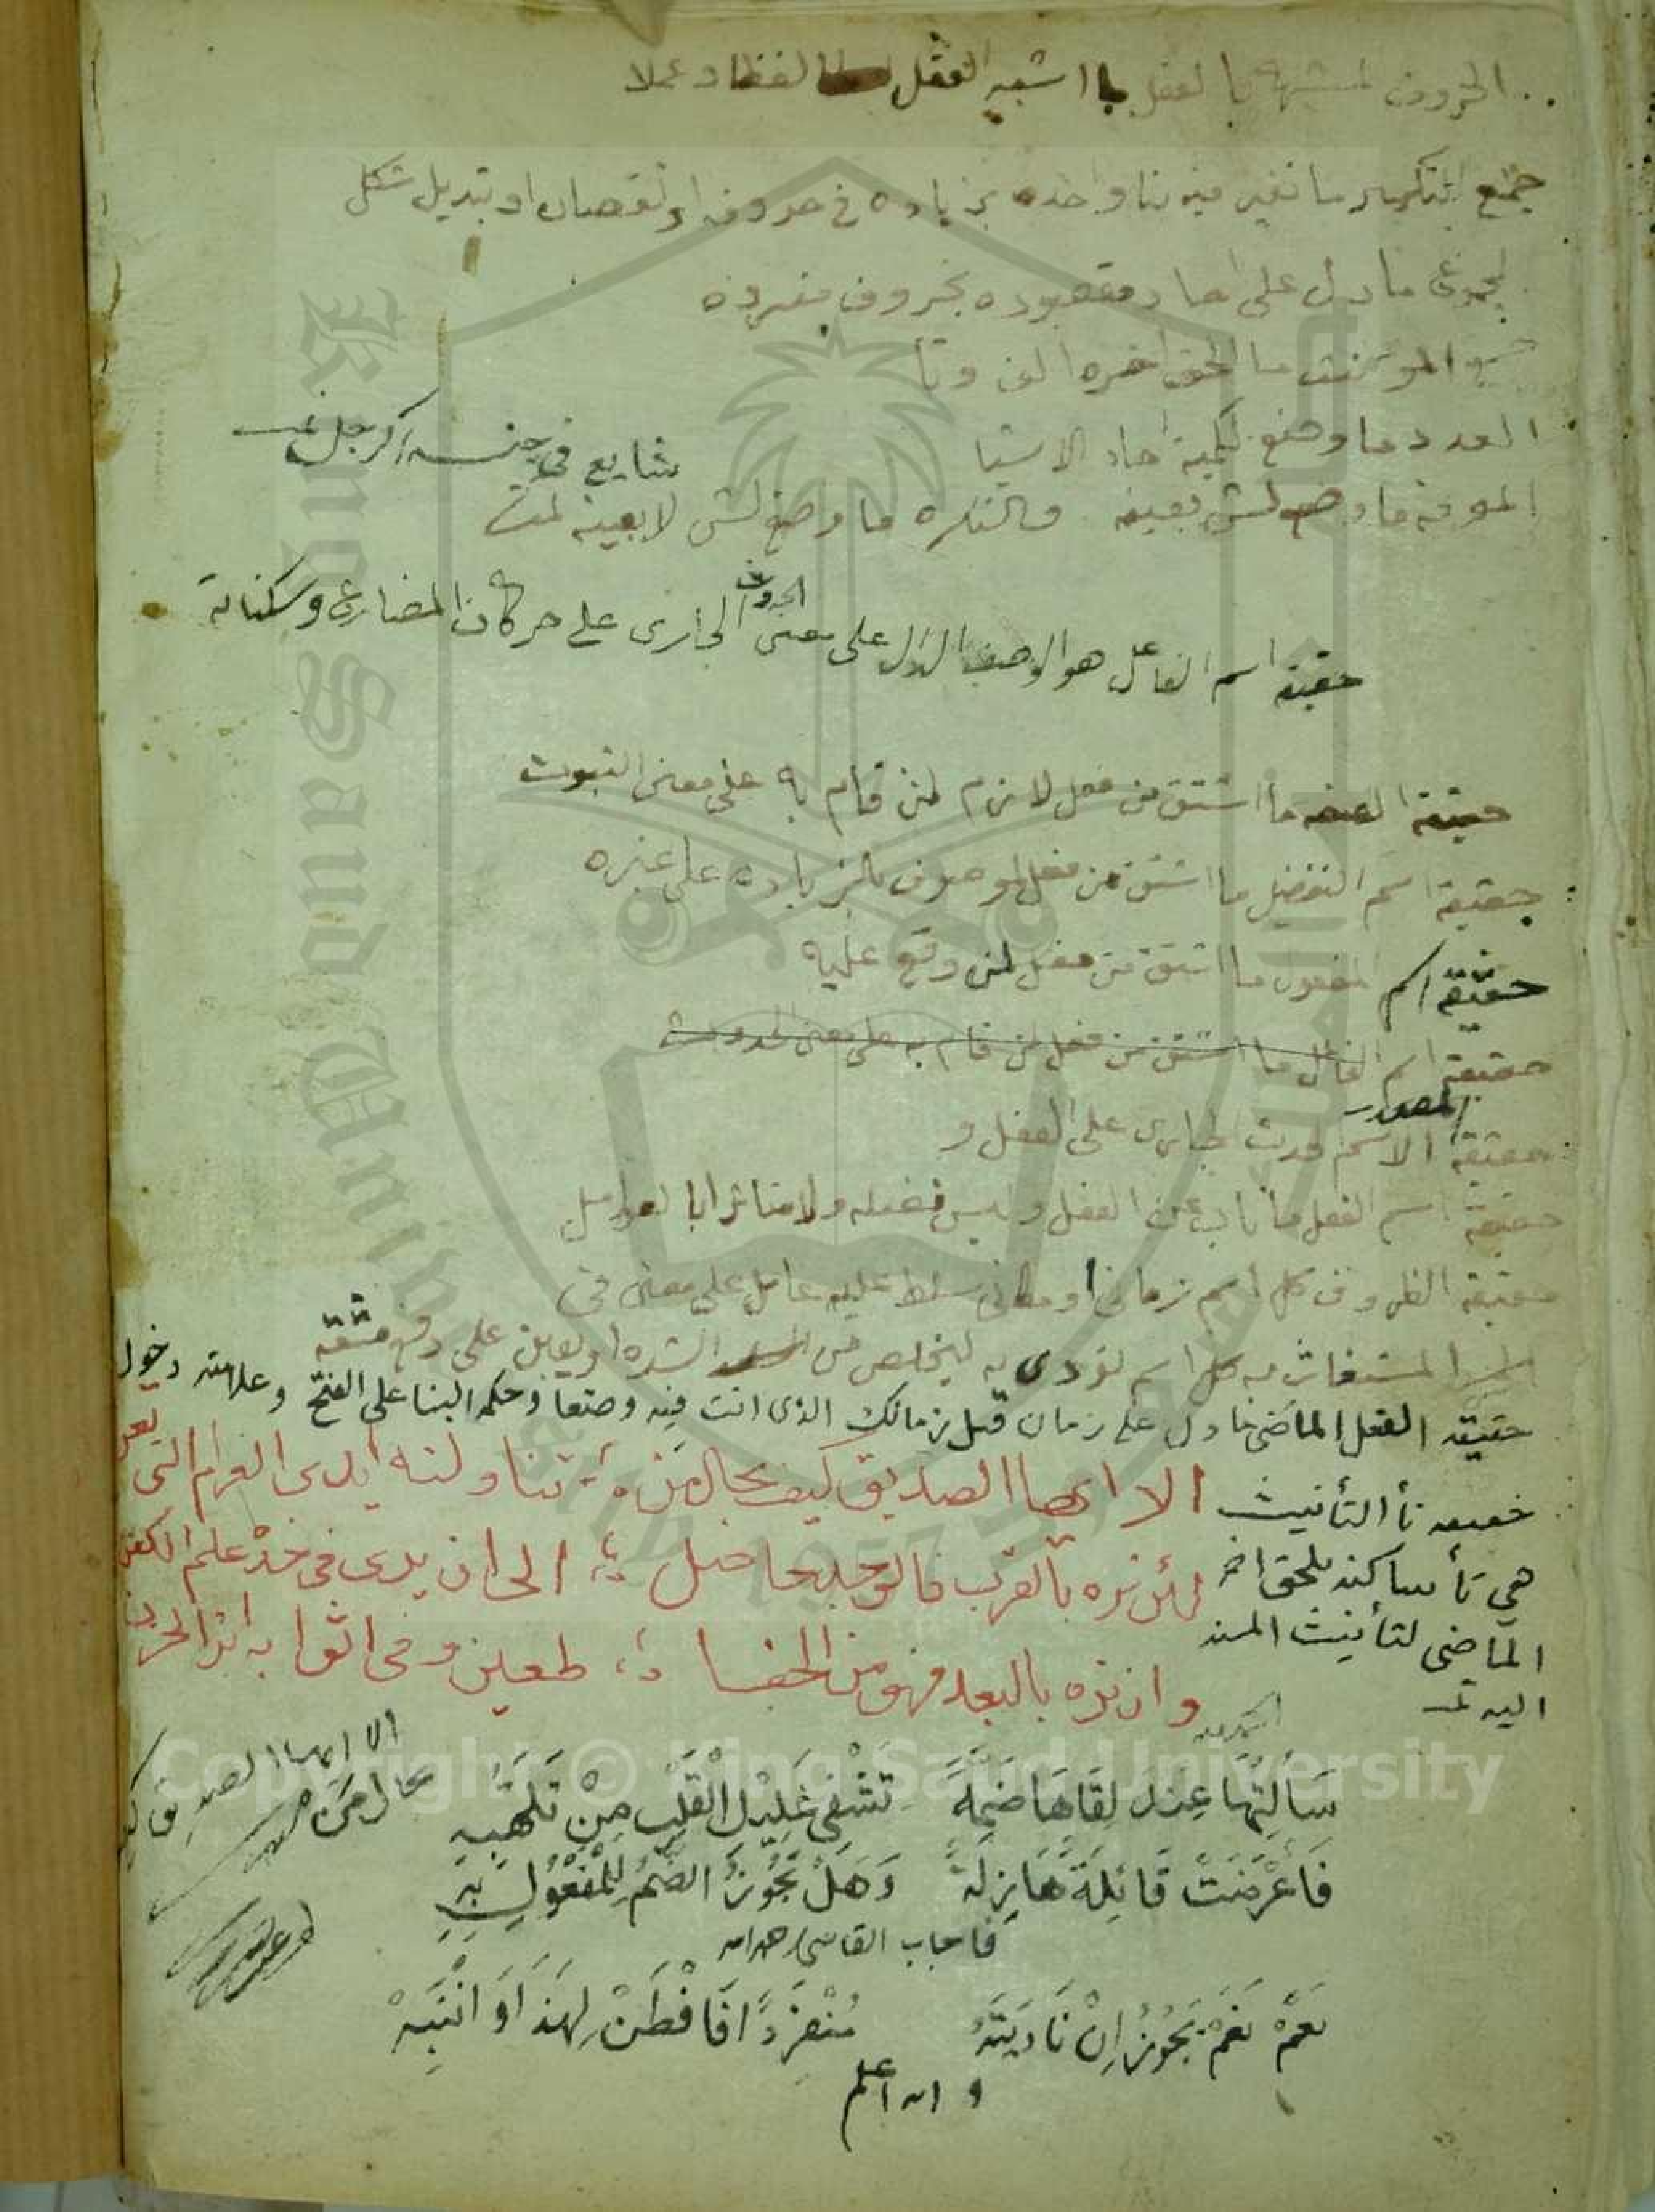 الحروف المشبهة بالفعل ما اشبه الفعل لفظا وعملا
جمع التكسير ما تغير فيه بنا واحده بزياده في حروفه او نقصان او تبديل شكل
ما دل على احاد مقصوده بحروف مفرده
المونث ما الحق اخره الف وتا
العدد ما وضع لكمية احاد الاشيا
شايع في جنسه كرجل تمت
المعرفه ما وضع لشي بعينه والنكره ما وضع لشي لا بعينه تمت
حقيقة اسم الفاعل هو الوصف الدال على معنى الحدوث الجارى على حركات المضارع وسكناته
حقيقة الصفه ما اشتق من فعل لازم لمن قام به على معنى الثبوت
حقيقة اسم التفضيل ما اشتق من فعل لموصوف بالزياده على غيره
حقيقة اسم المفعول ما اشتق من فعل لمن وقع عليه
حقيقة اسم الفاعل ما اشتق من فعل لمن قام به على معنى الحدوث
المصدر
حقيقة الاسم حدث الجارى على الفعل و
حقيقة اسم الفعل ما ناب عن الفعل وليس فضله ولا متاثرا بالعوامل
حقيقة الظروف كل اسم زماني او مكاني سلط عليه عامل على معنى في
المستغاث به كل اسم نودى به ليخلص من الشده او يعين على دفع مشقه
حقيقة الفعل الماضي ما دل على زمان قبل زمانك الذى انت فيه وضعا وحكمه البنا على الفتح وعلامته دخول
تا التأنيث
هي تأ ساكنه تلحق اخر
الماضى لتأنيث المسند
اليه تمت
الا ايها الصديق كيف بحال من تناولته ايدى الغرام التى
لئن تره بالقرب فالوجد حاصل الى ان يدى في خد علم الكف
وان تره بالبعد فهو من الجفا طعين وفي اثوابه اثر الحرب
سَأَلتُهَا عِندَ لِقَاهَا ضَمَّةً تَشْفِي غَلِيْلَ الْقَلْبِ مِنْ تَلَهُّبِهِ
فَأَعْرَضَتْ قَائِلَةً هَازِلَةً وَهَلْ يَجُوْزُ الضَّمُّ لِلْمَفْعُوْلِ بِهِ
فاجاب القاضي
نَعَمْ نَعَمْ يَجُوْزُ إِنْ نَادَيْتَهُ مُنْفَرِدًا فَافْطَنْ لِهَذَا وَانْتَبِهْ
والله اعلم
الا ايها الصديق كيف
بحال من